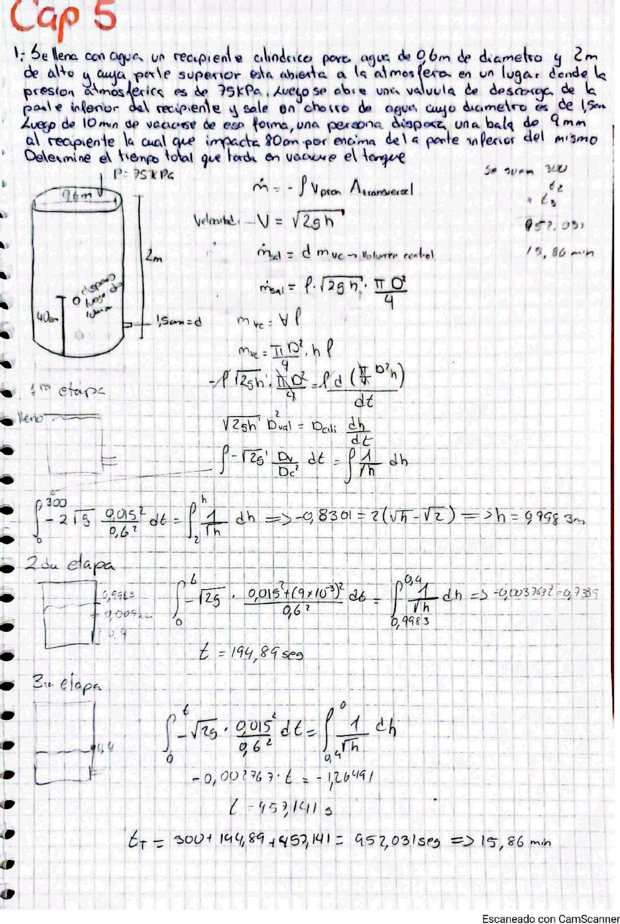 Cap 5
1: Se llena con agua un recipiente cilindrico para agua de 0,6m de diametro y 2m
de alto y cuya parte superior esta abierta a la atmosfera en un lugar donde la
presion atmosferica es de 75kPa. Luego se abre una valvula de descarga de la
parte inferior del recipiente y sale un chorro de agua cuyo diametro es de 1,5cm
Luego de 10min de vaciarse de esa forma, una persona dispara una bala de 9mm
al recipiente la cual que impacta 80cm por encima de la parte inferior del mismo
Determine el tiempo total que tarda en vaciarse el tanque
P=75kPa
0,6m
2m
40cm
1,5cm=d
ṁ = -ρ Vprom Atransversal
300
t2
+ t3
952,031
15,86 min
Velocidad: - V = √2gh
ṁsal = d mvc → Volumen control
ṁsal = ρ·√2gh · πD²/4
mvc = ∀ρ
mvc = πD²/4 · h ρ
-ρ√2gh · πD²/4 = ρ d(π/4 D²h)/dt
√2gh D²val = Dcili dh/dt
∫-√2g Dv/Dc² dt = ∫1/√h dh
1ra etapa
lleno
∫₀³⁰⁰ -2√g 0,015²/0,6² dt = ∫₂ʰ 1/√h dh => -0,8301 = 2(√h - √2) => h = 0,9983m
2da etapa
0,9983
0,009m
0,4
∫₀ᵗ -√2g · 0,015²+(9x10⁻³)²/0,6² dt = ∫₀,₉₉₈₃⁰,⁴ 1/√h dh =>
t = 194,89 seg
3ra etapa
0,4
∫₀ᵗ -√2g · 0,015²/0,6² dt = ∫₀,₄⁰ 1/√h dh
-0,002767·t = -1,26491
t = 457,141 s
tT = 300+194,89+457,141 = 952,031 seg => 15,86 min
Escaneado con CamScanner